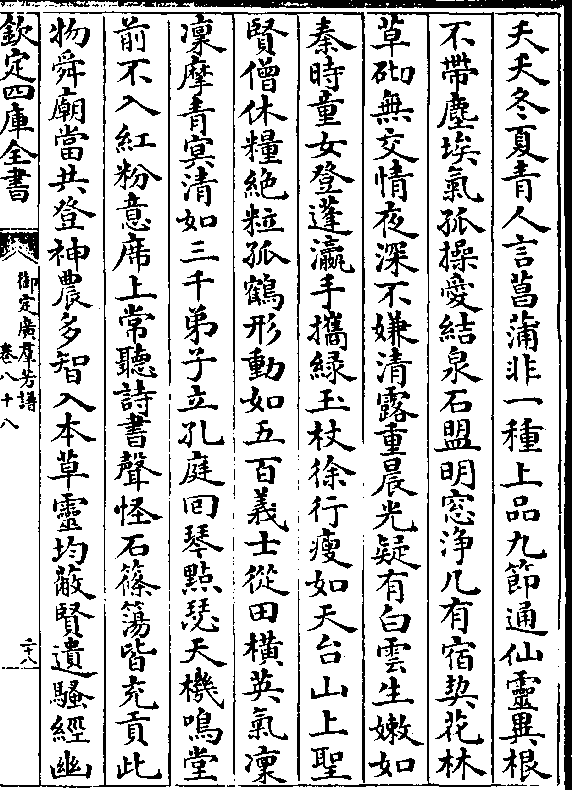 夭夭冬夏青人言菖蒲非一種上品九節通仙靈異根
不帶塵埃氣孤操愛結泉石盟明窓浄几有宿契花林
草砌無交情夜深不嫌清露重晨光疑有白雲生嫩如
秦時童女登蓬瀛手攜緑玉杖徐行瘦如天台山上聖
賢僧休糧絶粒孤鶴形動如五百義士從田橫英氣凜
凜摩青冥清如三千弟子立孔庭回琴點瑟天機鳴堂
前不入紅粉意席上常聽詩書聲怪石篠簜皆充貢此
物舜廟當共登神農多智入本草靈均蔽賢遺騷經幽
欽定四庫全書
御定廣羣芳譜
卷八十八
二十八